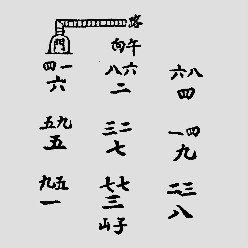 路
門 向午
四一 八六 六八
六 二 四
五九 三二 一四
五 七 九
九五 七七 二三
一 三 八
山子